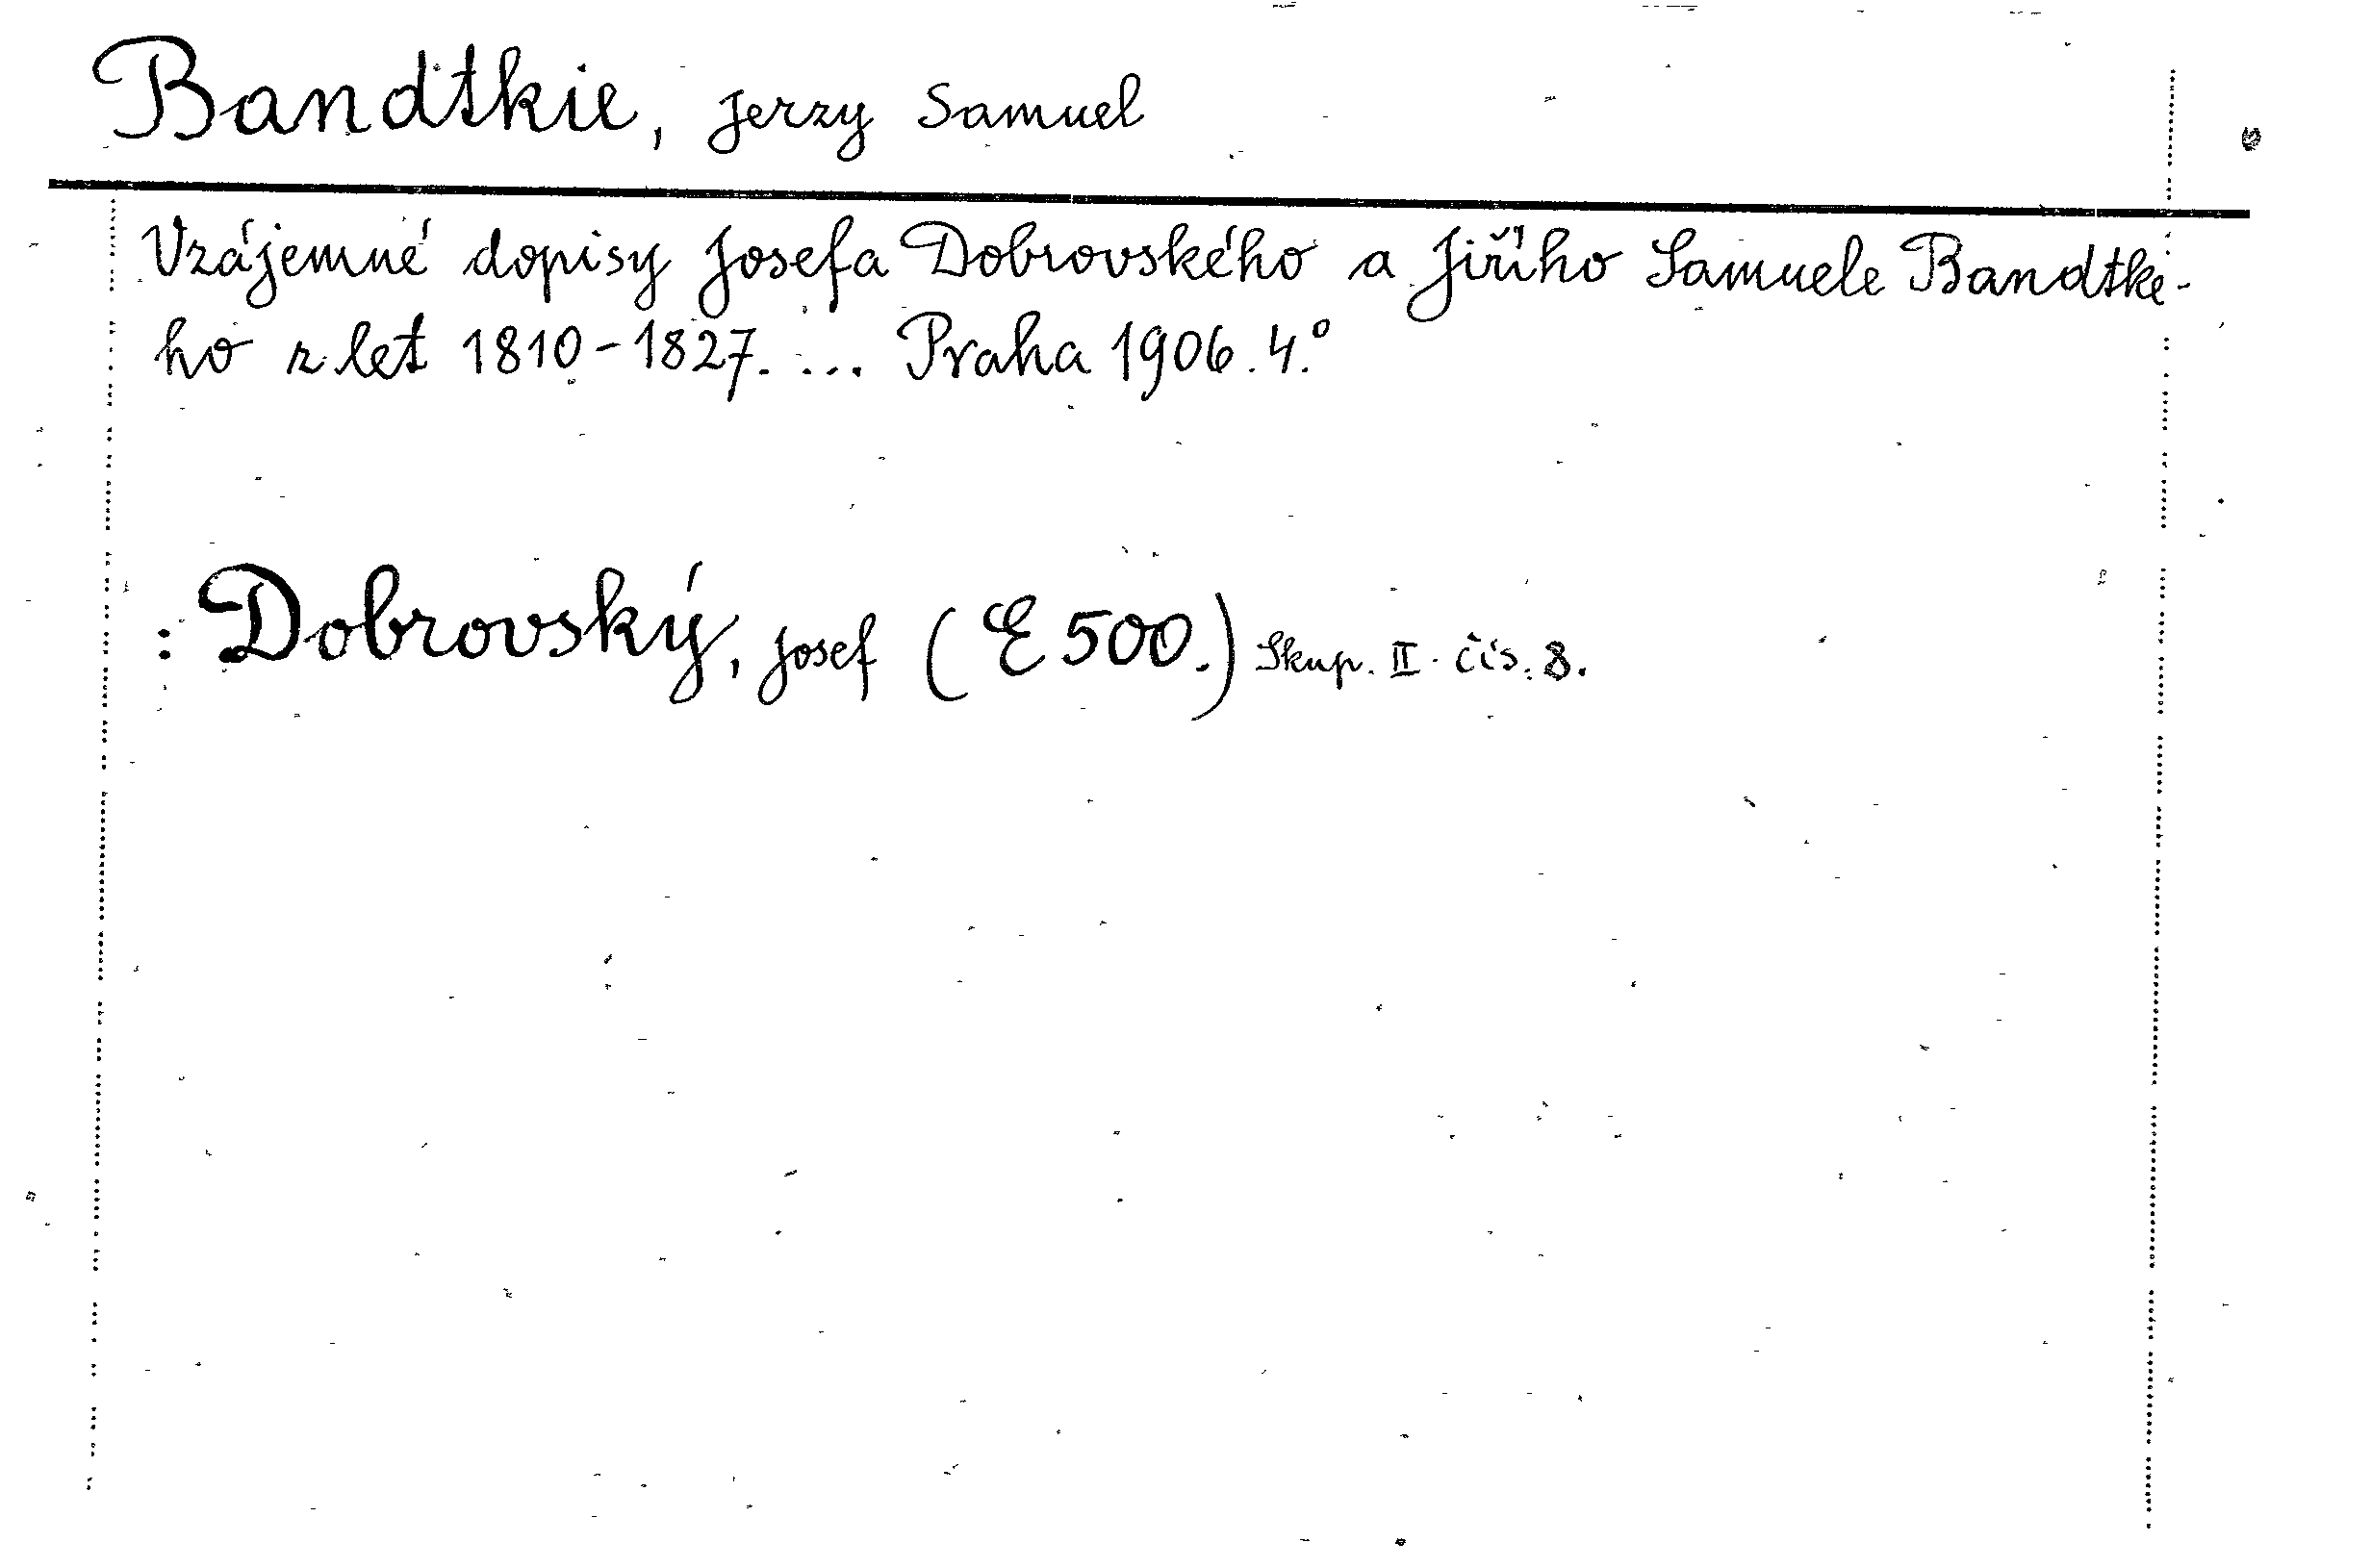 Bandtkie, Jerzy Samuel
Vzájemné dopisy Josefa Dobrovského a Jiřího Samuele Bandtke-
ho z let 1810-1827. ... Praha 1906. 4.°
: Dobrovský, Josef (E 500.) Skup. II. čís. 8.